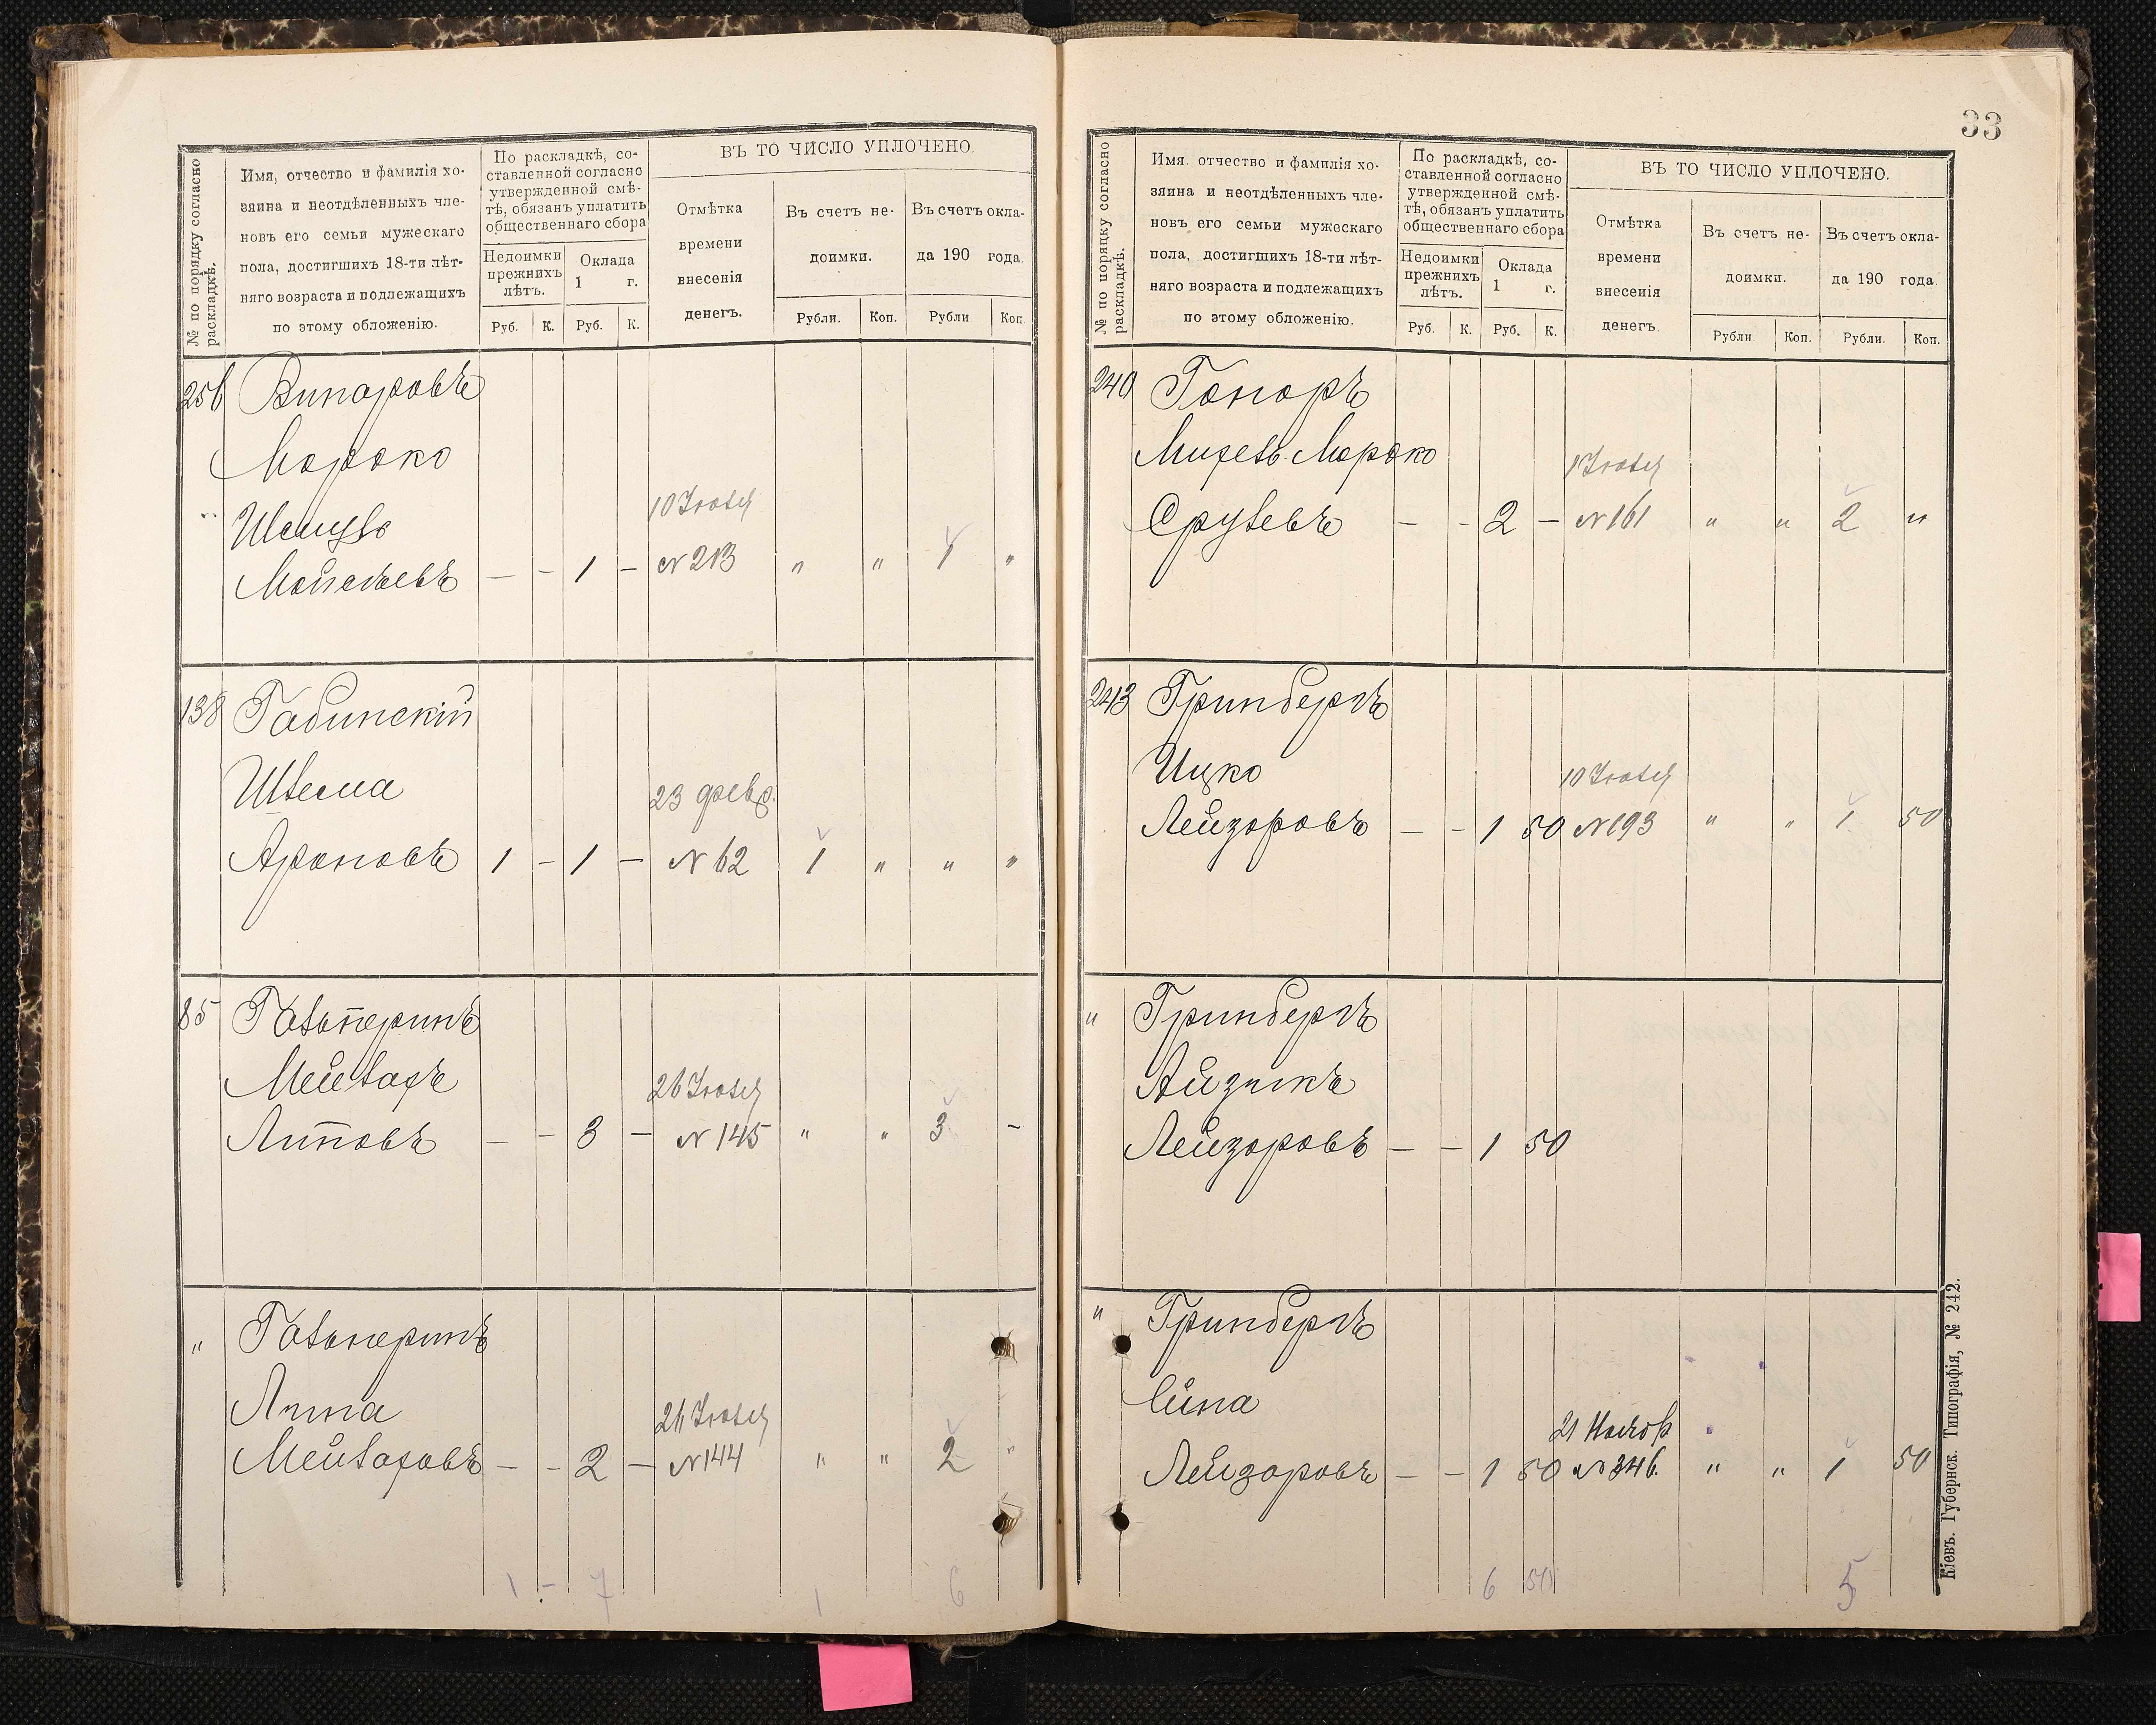 № по порядку согласно раскладкѣ.
Имя, отчество и фамилія хо-
зяина и неотдѣленныхъ чле-
новъ его семьи мужескаго
пола, достигшихъ 18-ти лѣт-
няго возраста и подлежащихъ
по этому обложенію.
По раскладкѣ, со-
ставленной согласно
утвержденной смѣ-
тѣ, обязанъ уплатить
общественнаго сбора
Недоимки
прежнихъ
лѣтъ.
Оклада
1 г.
Руб. К. Руб. К.
ВЪ ТО ЧИСЛО УПЛОЧЕНО.
Отмѣтка
времени
внесенія
денегъ.
Въ счетъ не-
доимки.
Въ счетъ окла-
да 190 года.
Рубли. Коп. Рубли Коп.
256 Винаровъ
Морако
Мойсѣевъ — — 1 —
10 Іюля
№ 213 " " 1 "
138 Габинскій
Шлема
Ароновъ 1 — 1 —
23 февр.
№ 62 1 " " "
85 Гальперинъ
Мейлахъ
Липовъ — — 3 —
26 Іюля
№ 145 " " 3 -
" Гальперинъ
Липа
Мейлаховъ — — 2 —
26 Іюля
№ 144 " " 2 "
1 - 7 1 6
33
№ по порядку согласно раскладкѣ.
Имя, отчество и фамилія хо-
зяина и неотдѣленныхъ чле-
новъ его семьи мужескаго
пола, достигшихъ 18-ти лѣт-
няго возраста и подлежащихъ
по этому обложенію.
По раскладкѣ, со-
ставленной согласно
утвержденной смѣ-
тѣ, обязанъ уплатить
общественнаго сбора
Недоимки
прежнихъ
лѣтъ.
Оклада
1 г.
Руб. К. Руб. К.
ВЪ ТО ЧИСЛО УПЛОЧЕНО.
Отмѣтка
времени
внесенія
денегъ.
Въ счетъ не-
доимки.
Въ счетъ окла-
да 190 года.
Рубли. Коп. Рубли. Коп.
240 Гоноръ
Михель Морако
Срулевъ — - 2 —
1 Іюля
№ 161 " " 2 "
243 Гринбергъ
Ицко
Лейзоровъ — - 1 50
10 Іюля
№ 193 " " 1 50
" Гринбергъ
Айзикъ
Лейзоровъ — — 1 50
" Гринбергъ
Лейзоровъ — — 1 50
21 Ноябр
№ 346. " " 1 50
6 50 5
Кіевъ. Губернск. Типографія, № 242.